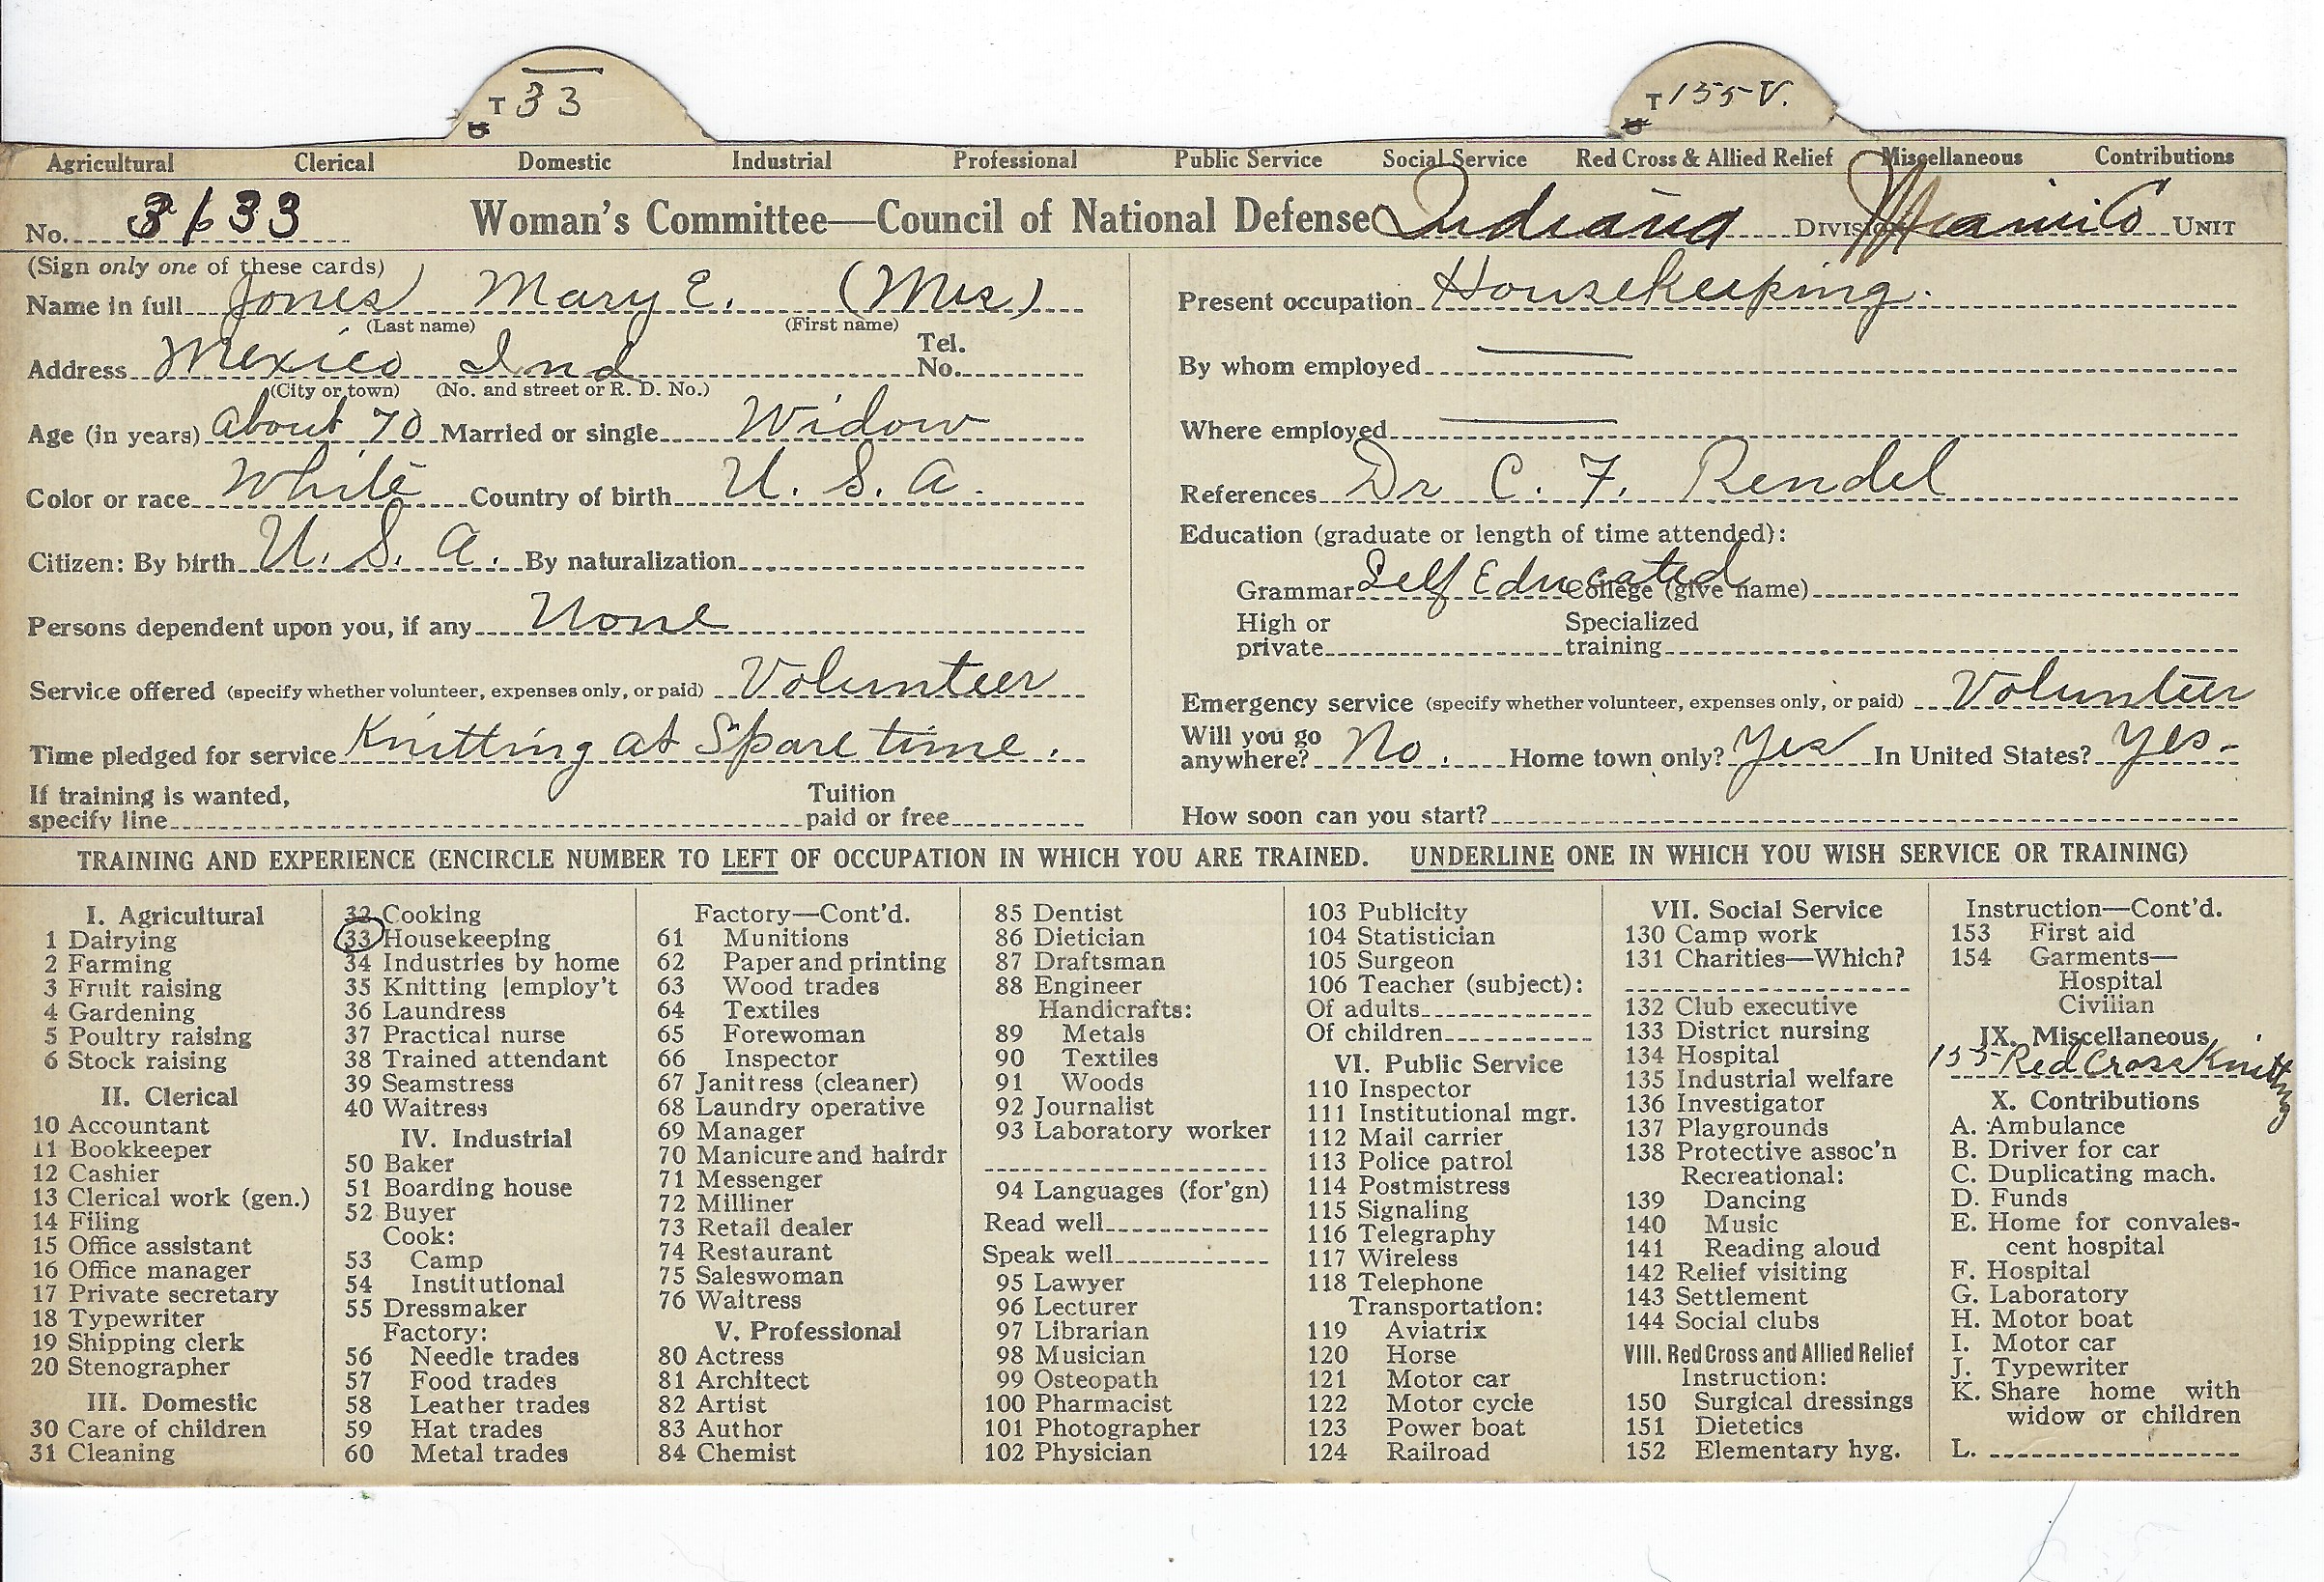 T 33
T 155 V.
Agricultural Clerical Domestic Industrial Professional Public Service Social Service Red Cross & Allied Relief Miscellaneous Contributions
No. 3633 Woman's Committee—Council of National Defense Indiana Division Miami Co UNIT
(Sign only one of these cards)
Name in full Jones Mary E. (Mrs)
(Last name) (First name)
Address Mexico Ind Tel. No.
(City or town) (No. and street or R. D. No.)
Age (in years) about 70 Married or single Widow
Color or race White Country of birth U. S. A.
Citizen: By birth U. S. A. By naturalization
Persons dependent upon you, if any None
Service offered (specify whether volunteer, expenses only, or paid) Volunteer
Time pledged for service Knitting at Spare time.
If training is wanted, specify line Tuition paid or free
Present occupation Housekeeping.
By whom employed
Where employed
References Dr C. F. Rendel
Education (graduate or length of time attended):
Grammar Self Educated College (give name)
High or private Specialized training
Emergency service (specify whether volunteer, expenses only, or paid) Volunteer
Will you go anywhere? No. Home town only? Yes In United States? Yes-
How soon can you start?
TRAINING AND EXPERIENCE (ENCIRCLE NUMBER TO LEFT OF OCCUPATION IN WHICH YOU ARE TRAINED. UNDERLINE ONE IN WHICH YOU WISH SERVICE OR TRAINING)
I. Agricultural
1 Dairying
2 Farming
3 Fruit raising
4 Gardening
5 Poultry raising
6 Stock raising
II. Clerical
10 Accountant
11 Bookkeeper
12 Cashier
13 Clerical work (gen.)
14 Filing
15 Office assistant
16 Office manager
17 Private secretary
18 Typewriter
19 Shipping clerk
20 Stenographer
III. Domestic
30 Care of children
31 Cleaning
32 Cooking
33 Housekeeping
34 Industries by home
35 Knitting [employ't
36 Laundress
37 Practical nurse
38 Trained attendant
39 Seamstress
40 Waitress
IV. Industrial
50 Baker
51 Boarding house
52 Buyer
Cook:
53 Camp
54 Institutional
55 Dressmaker
Factory:
56 Needle trades
57 Food trades
58 Leather trades
59 Hat trades
60 Metal trades
Factory—Cont'd.
61 Munitions
62 Paper and printing
63 Wood trades
64 Textiles
65 Forewoman
66 Inspector
67 Janitress (cleaner)
68 Laundry operative
69 Manager
70 Manicure and hairdr
71 Messenger
72 Milliner
73 Retail dealer
74 Restaurant
75 Saleswoman
76 Waitress
V. Professional
80 Actress
81 Architect
82 Artist
83 Author
84 Chemist
85 Dentist
86 Dietician
87 Draftsman
88 Engineer
Handicrafts:
89 Metals
90 Textiles
91 Woods
92 Journalist
93 Laboratory worker
94 Languages (for'gn)
Read well
Speak well
95 Lawyer
96 Lecturer
97 Librarian
98 Musician
99 Osteopath
100 Pharmacist
101 Photographer
102 Physician
103 Publicity
104 Statistician
105 Surgeon
106 Teacher (subject):
Of adults
Of children
VI. Public Service
110 Inspector
111 Institutional mgr.
112 Mail carrier
113 Police patrol
114 Postmistress
115 Signaling
116 Telegraphy
117 Wireless
118 Telephone
Transportation:
119 Aviatrix
120 Horse
121 Motor car
122 Motor cycle
123 Power boat
124 Railroad
VII. Social Service
130 Camp work
131 Charities—Which?
132 Club executive
133 District nursing
134 Hospital
135 Industrial welfare
136 Investigator
137 Playgrounds
138 Protective assoc'n
Recreational:
139 Dancing
140 Music
141 Reading aloud
142 Relief visiting
143 Settlement
144 Social clubs
VIII. Red Cross and Allied Relief
Instruction:
150 Surgical dressings
151 Dietetics
152 Elementary hyg.
Instruction—Cont'd.
153 First aid
154 Garments—
Hospital
Civilian
IX. Miscellaneous
155 Red Cross Knitting
X. Contributions
A. Ambulance
B. Driver for car
C. Duplicating mach.
D. Funds
E. Home for convales-
cent hospital
F. Hospital
G. Laboratory
H. Motor boat
I. Motor car
J. Typewriter
K. Share home with
widow or children
L.